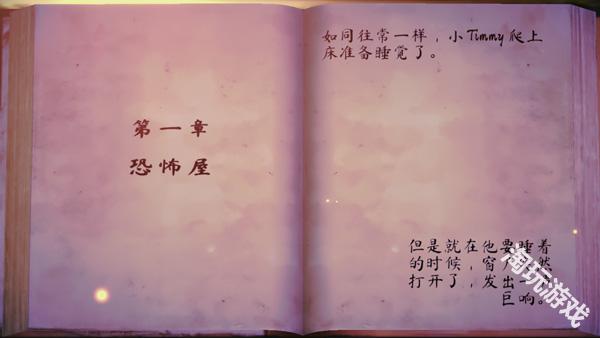 第一章
恐怖屋
如同往常一样，小Timmy爬上
床准备睡觉了。
但是就在他要睡着
的时候，窗 然
打开了，发出一
巨响。
淘玩游戏